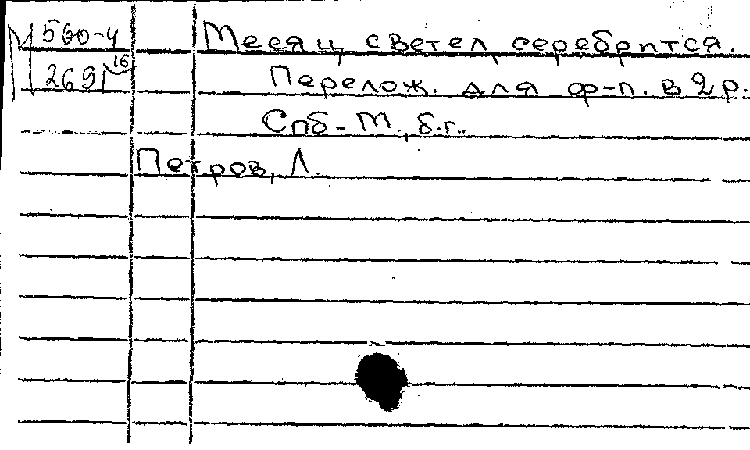 М 560-4 Месяц светел серебрится.
2691 16 Перелож. для ф-п. в 2 р.
Спб - М, б.г.
Петров, Л.